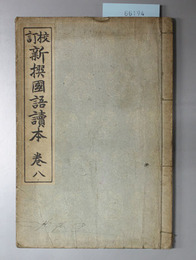 校訂
新撰國語讀本 卷八